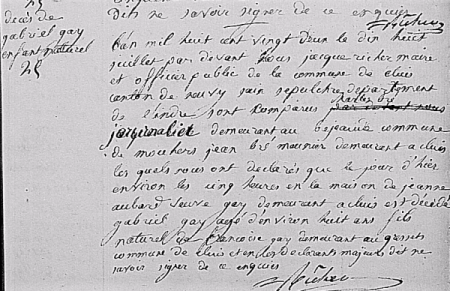 dits ne savoir signer de ce enquis
décès de
gabriel gay
enfant naturel
L'an mil huit cent vingt deux le dix huit
juillet par devant nous jacque richer maire
et officier public de la commune de cluis
canton de neuvy sain sepulchre departement
de l'indre sont comparus
journalier demeurant au commune
de mouhers jean meunier demeurant a cluis
les quels nous ont declarés que le jour d'hier
environ les cinq heures en la maison de jeanne
aubard veuve gay demeurant a cluis est décédé
gabriel gay agé d'environ huit ans fils
naturel de gay demeurant au
commune de cluis et les declarants majeurs dit ne
savoir signer de ce enquis
Richer